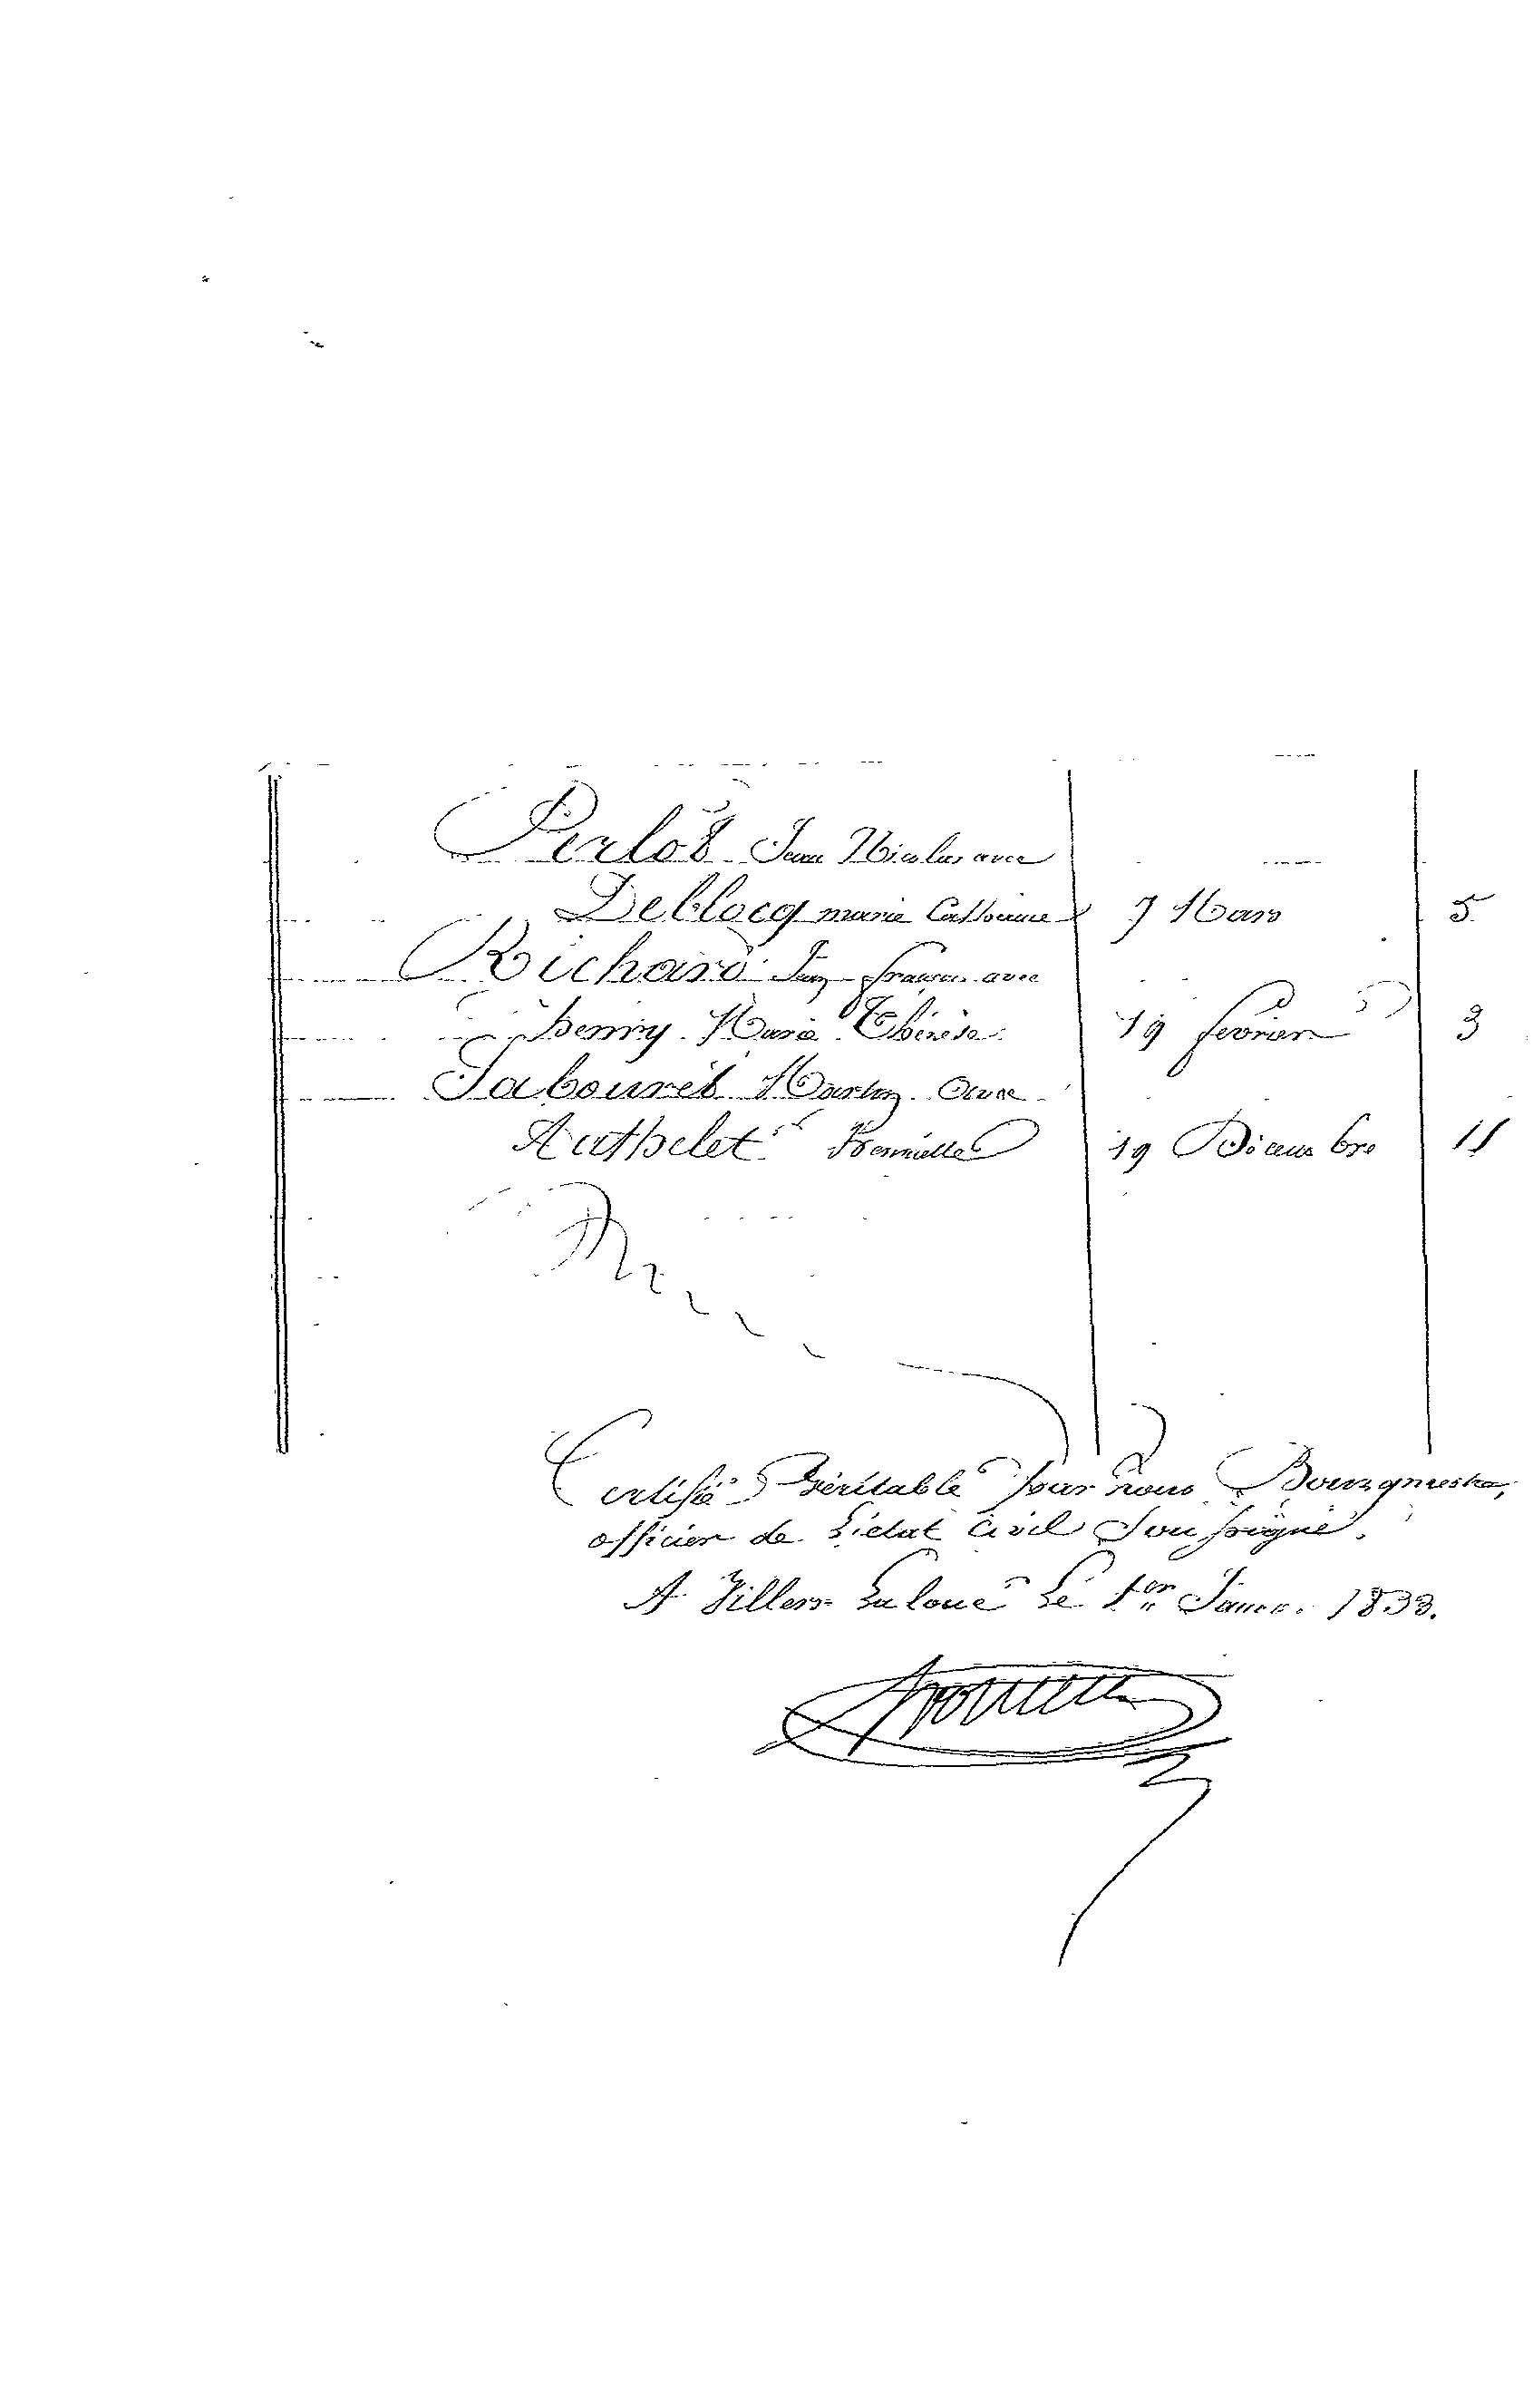 Perlot Jean Nicolas avec
Deblocq marie Catherine 7 Mars 5
Richard Jean françois avec
henry Marie Thérèse 19 fevrier 3
Tabouret Martin Avec
Authelet 19 Décembre 11
Certifié Véritable par nous Bourgmestre,
officier de L'etat Civil Soussigné.
A Villers La loue Le 1er Janvr. 1833.